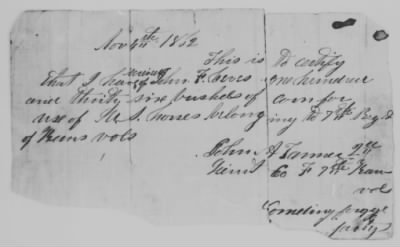 Nov 4th 1862
This is to certify
that I have received of John F. one hundred
and thirty six bushels of corn for
use of U. S. horses belonging to 7th Reg't
of Kans vols
John A Tanner 2nd
Lieut Co F 7th Kan
vol
Comding